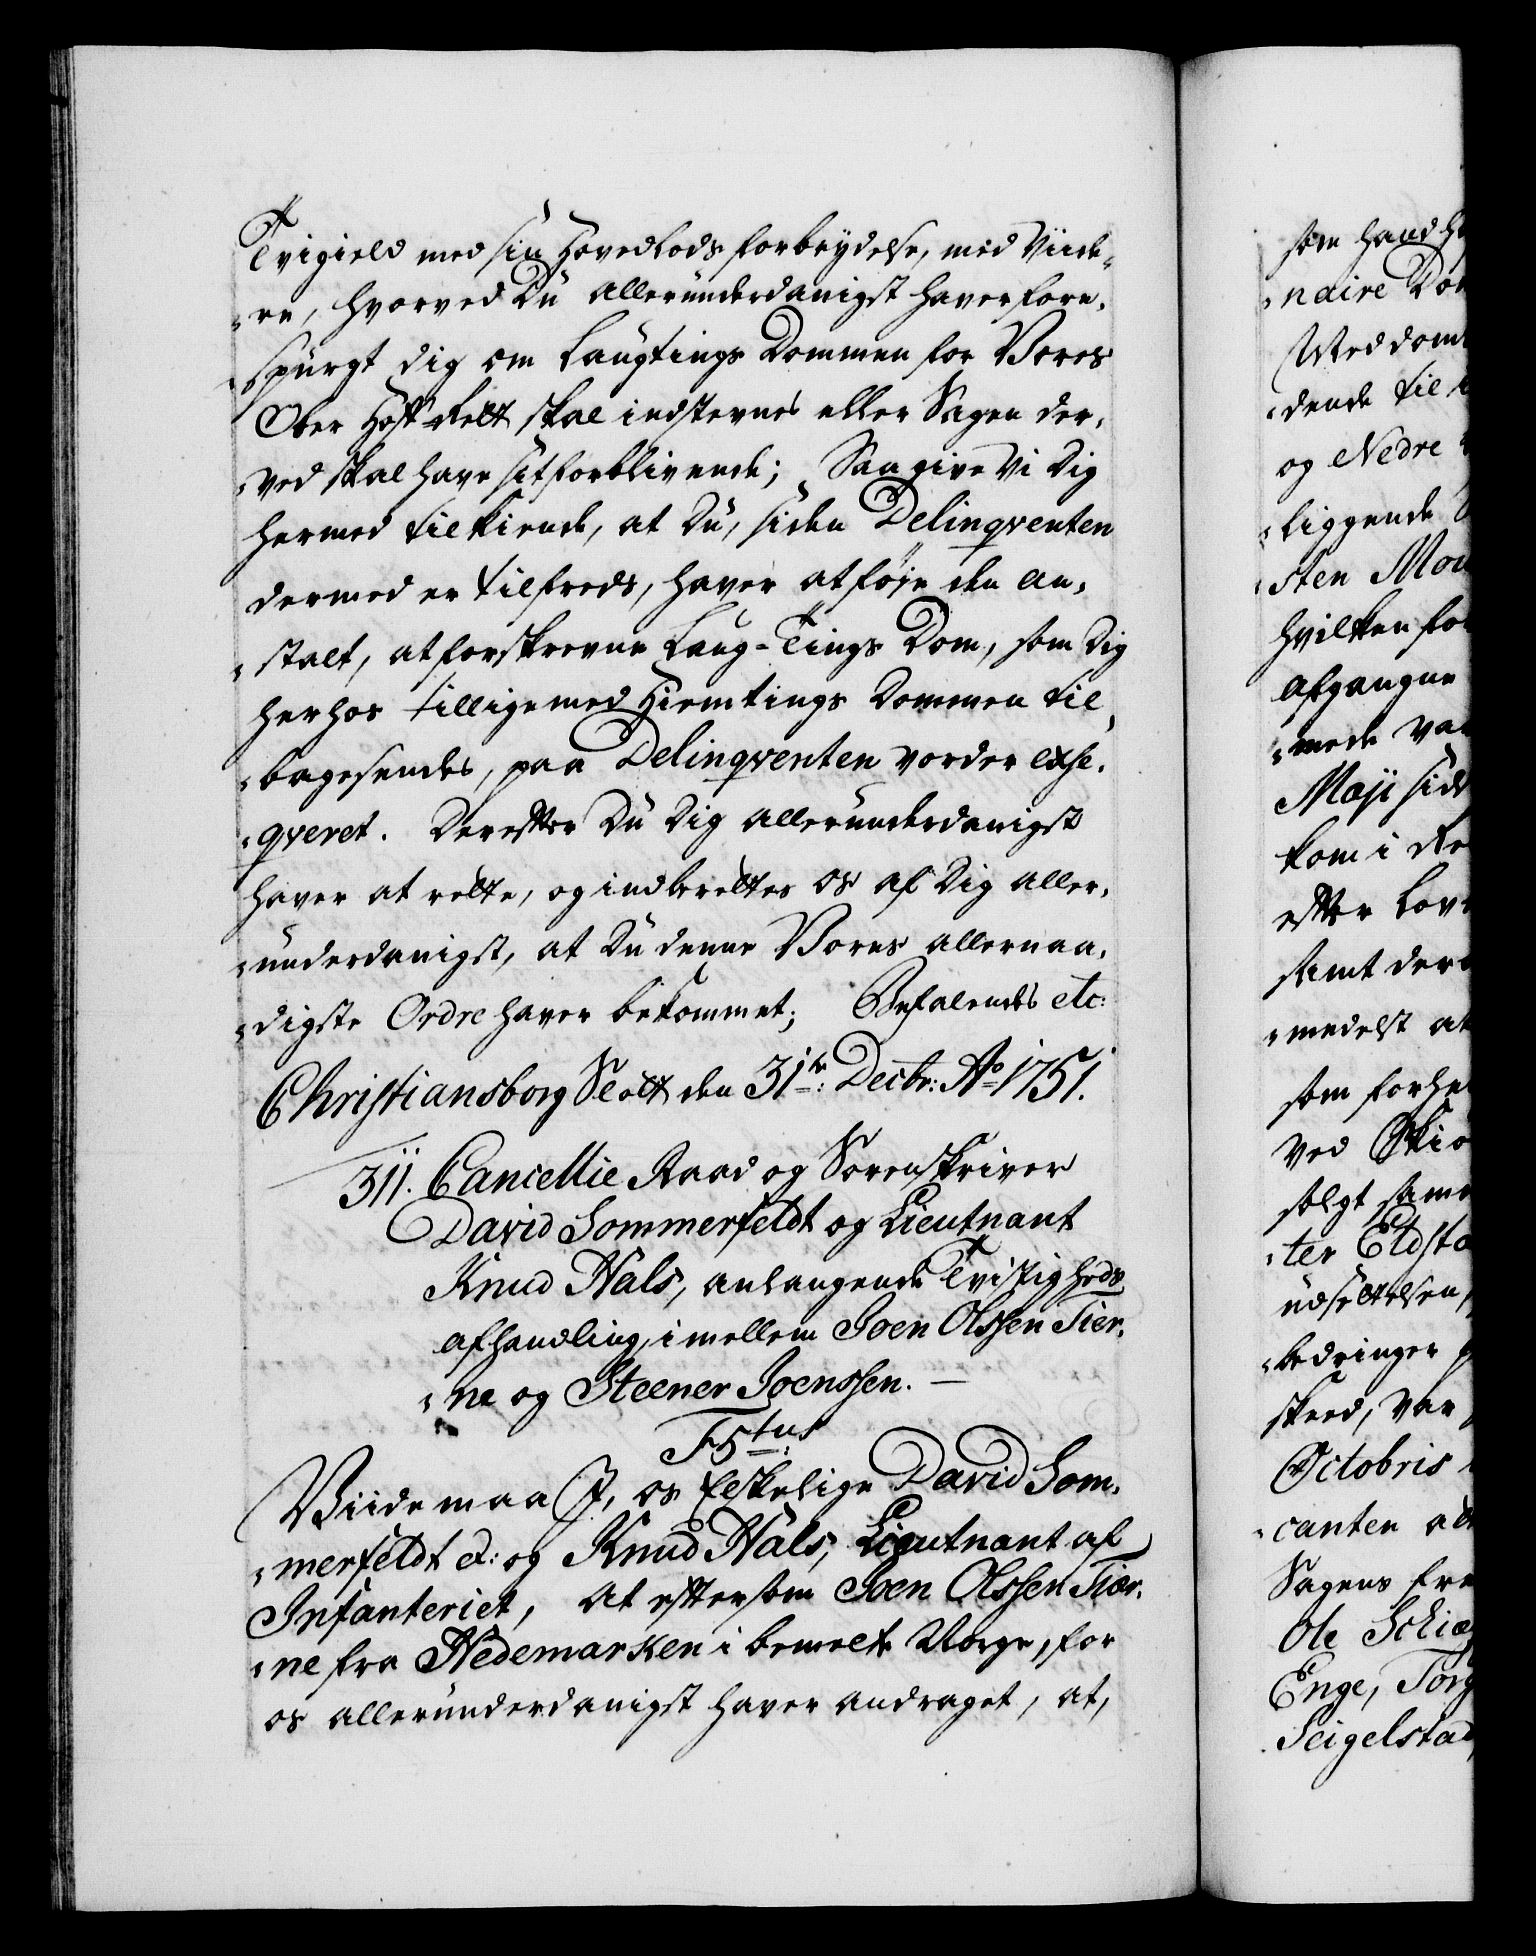 Tvigield med sin Hovedlods forbrydelse, med Viide-
-re, hvorved Du allerunderdanigst haver fore-
-spurgt dig om Laugtings Dommen for Vores
Ober Hoff-Rett skal indstevnes eller Sagen der-
-ved skal have sit forblivende; Saa give Vi Dig
hermed tilkiende, at Du, siden Delinqventen
dermed er tilfreds, haver at føje den an-
-stalt, at forskrevne Laug-Tings Dom, som Dig
herhos tillige med Hiemtings Dommen til-
-bagesendes, paa Delinqventen vorder exse-
-qveret. Derefter Du Dig allerunderdanigst
haver at rette, og indberettes os af Dig aller-
-underdanigst, at Du denne Vores allernaa-
-digste Ordre haver bekommet; Befalendes etc:
Christiansborg Slott den 31te: Decbr: Ao 1751.
311. Cancellie Raad og Sorenskriver
David Sommerfeldt og Lieutnant
Knud Hals, anlangende Tvistigheds
afhandling, imellem Joen Olssen Tier-
-ne og Steener Joenssen. —
F5tus
Viide maa J, os Elskelige David Som-
-merfeldt &: og Knud Hals, Lieutnant af
Infanteriet, at eftersom Joen Olssen Tier-
-ne fra Hedemarken i bemelte Norge, for
os allerunderdanigst haver andraget, at,
som hand
-naire
Meddom
-dende til
og Nedre
-liggende
-sten
hvilken
afgangne
-mede
Maji sidst
kom i
efter Lov
samt der
-medelst at
som
ved
solgt
-ter Eldsta
udsettelsen,
-bedringer
skeed, var
Octobris
-canten
Sagens
Ole Schiæ
Enge, Torg
Seigelstad